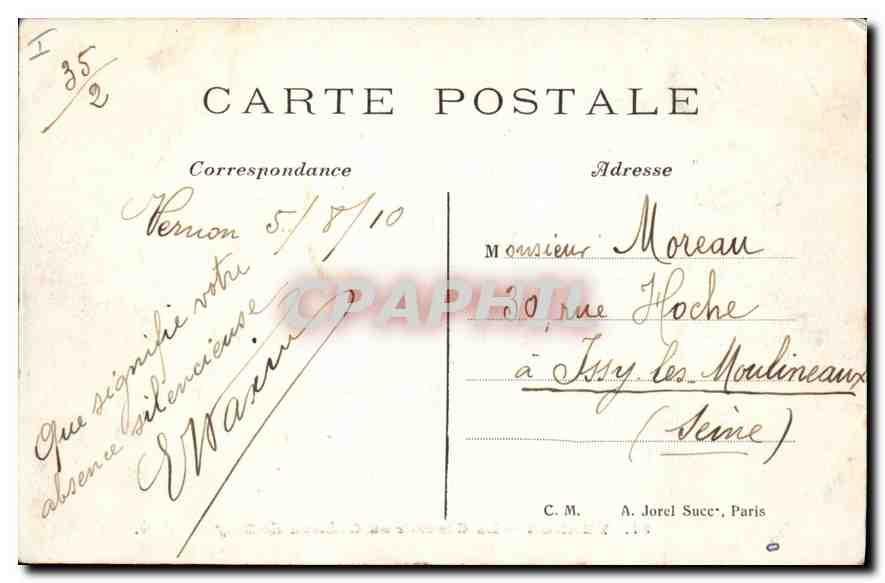 I
35/2
CARTE POSTALE
Correspondance
Adresse
Vernon 5/8/10
Que signifie votre
absence silencieuse
EWaxin
Monsieur Moreau
30, rue Hoche
à Issy-les-Moulineaux
(Seine)
CPAPHIL
C. M. A. Jorel Succr, Paris